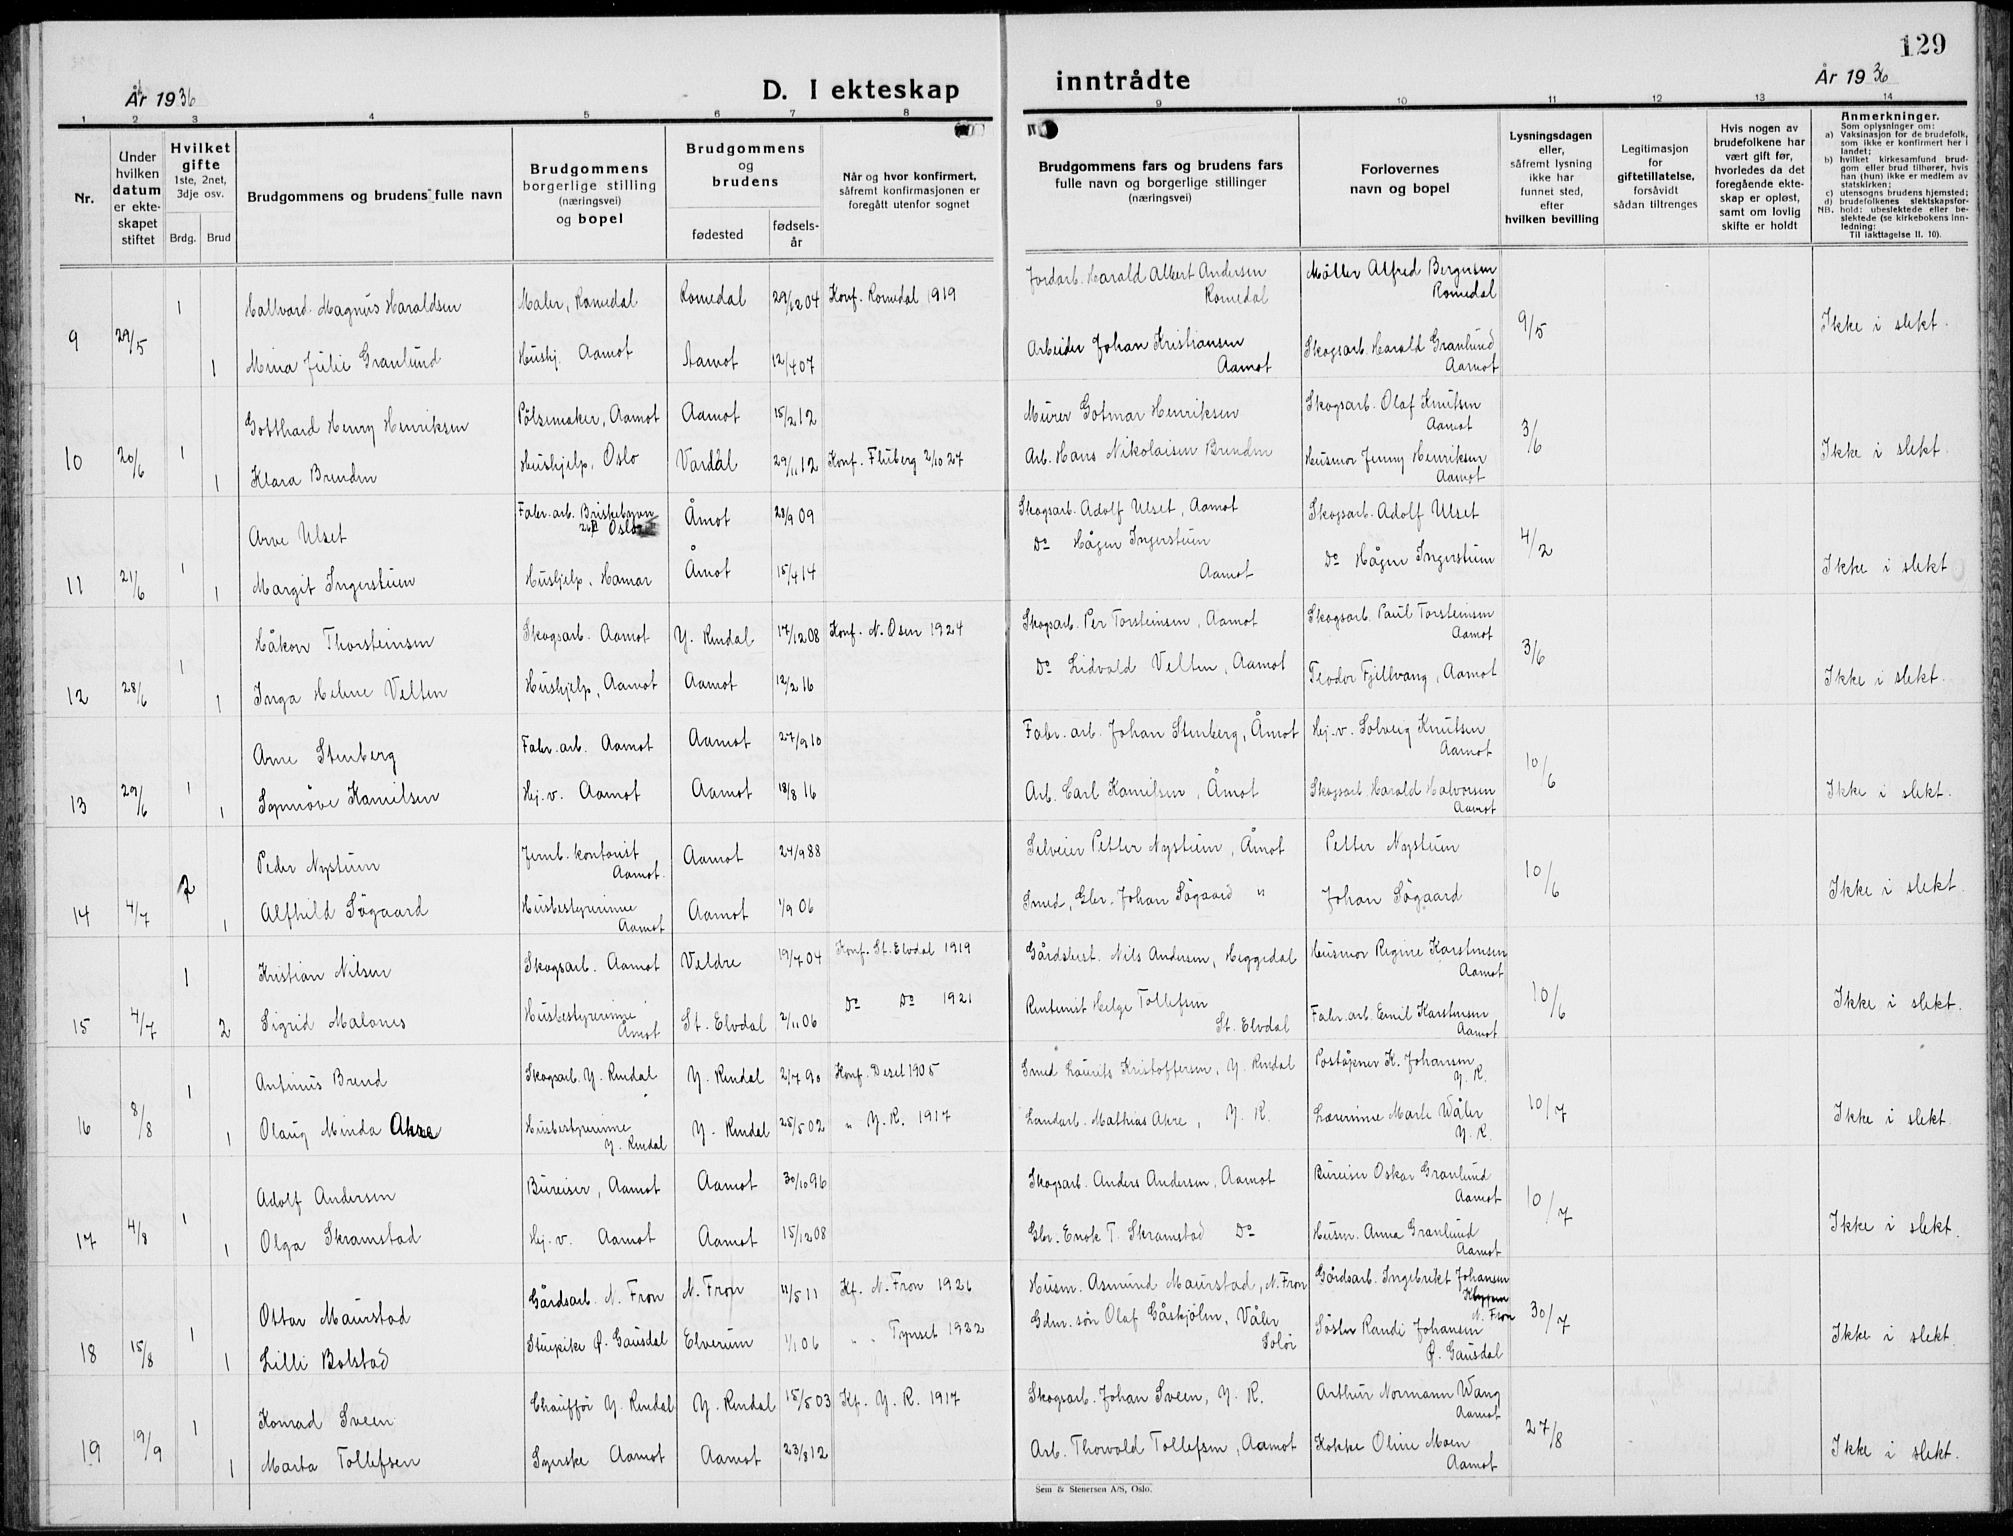 129
År 1936
D. I ekteskap inntrådte
År 1936
1 2 3 4 5 6 7 8 9 10 11 12 13 14
Nr.
Under hvilken datum er ekteskapet stiftet
Hvilket gifte 1ste, 2net, 3dje osv.
Brdg. Brud
Brudgommens og brudens fulle navn
Brudgommens borgerlige stilling (næringsvei) og bopel
Brudgommens og brudens
fødested
fødselsår
Når og hvor konfirmert, såfremt konfirmasjonen er foregått utenfor sognet
Brudgommens fars og brudens fars fulle navn og borgerlige stillinger (næringsvei)
Forlovernes navn og bopel
Lysningsdagen eller, såfremt lysning ikke har funnet sted, efter hvilken bevilling
Legitimasjon for giftetillatelse, forsåvidt sådan tiltrenges
Hvis nogen av brudefolkene har vært gift før, hvorledes da det foregående ekteskap er opløst, samt om lovlig skifte er holdt
Anmerkninger.
Som oplysninger om:
a) Vaksinasjon for de brudefolk, som ikke er konfirmert her i landet;
b) hvilket kirkesamfund brudgom eller brud tilhører, hvis han (hun) ikke er medlem av statskirken;
c) utensogns brudens hjemsted;
d) brudefolkenes slektskapsforhold: ubeslektede eller beslektede (se kirkebokens innledning:
NB. Til iakttagelse II. 10).
9 29/5 1 Hallvard Magnus Haraldsen Maler, Romedal Romedal 29/12 04 Konf. Romedal 1919 Jordarb. Harald Albert Andersen Romedal Møller Alfred Bergersen Romedal 9/5 Ikke i slekt.
1 Mina Julie Granlund Hushj. Aamot Aamot 12/4 07 Arbeider Johan Kristiansen Aamot Skogsarb. Harald Granlund Aamot
10 20/6 1 Gotthard Henry Henriksen Pølsemaker, Aamot Aamot 15/2 12 Murer Gotmar Henriksen Skogsarb. Olaf Knutsen Aamot 3/6 Ikke i slekt.
1 Klara Brenden Hushjelp, Oslo Vardal 29/11 12 Konf. Fluberg 2/10 27 Arb. Hans Nikolaisen Brenden Husmor Jenny Henriksen Aamot
11 21/6 1 Arve Ulset Fabr. arb. Briskebyvn 26 Oslo Åmot 28/9 09 Skogsarb. Adolf Ulset, Aamot Skogsarb. Adolf Ulset 4/2 Ikke i slekt
1 Margit Ingerstuen Hushjelp, Hamar Åmot 15/4 14 Do Hågen Ingerstuen Aamot Do Hågen Ingerstuen
12 28/6 1 Håkon Thorsteinsen Skogsarb. Aamot Y. Rendal 17/12 08 Konf. N. Osen 1924 Skogsarb. Per Torsteinsen, Aamot Skogsarb. Paul Torsteinsen Aamot 3/6 Ikke i slekt.
1 Inga Helene Velten Hushjelp, Aamot Aamot 12/2 16 Do Lidvald Velten, Aamot Teodor Fjellvang, Aamot
13 29/6 1 Arne Stenberg Fabr. arb. Aamot Aamot 27/9 10 Fabr. arb. Johan Stenberg, Åmot Hj. v. Solveig Knutsen Aamot 10/6 Ikke i slekt.
1 Synnöve Kamilsen Hj. v. Aamot Aamot 18/8 16 Arb. Carl Kamilsen, Åmot Skogsarb. Harald Halvorsen Aamot
14 4/7 2 Peder Nystuen Jernb. kontorist Aamot. Aamot 24/9 88 Selveier Petter Nystuen, Åmot Petter Nystuen 10/6 Ikke i slekt.
1 Alfhild Sögaard Husbestyrerinne Aamot Aamot 1/9 06 Smed, Gbr. Johan Sögaard " Johan Sögaard
15 4/7 1 Kristian Nilsen Skogsarb. Aamot Veldre 19/7 04 Konf. St. Elvdal 1919 Gårdsbest. Nils Andersen, Heggedal Husmor Regine Karstensen Aamot 10/6 Ikke i slekt.
2 Sigrid Malones Husbestyrerinne Åmot St. Elvdal 2/11 06 Do Do 1921 Rentenist Helge Tollefsen St. Elvdal Fabr. arb. Emil Karstensen Aamot
16 8/8 1 Antinius Brend Skogsarb. Y. Rendal Y. Rendal 2/7 90 Konf. Deset 1905 Smed Laurits Kristoffersen, Y. Rendal Poståpner K. Johansen Y. R. 10/7 Ikke i slekt.
1 Olaug Minda Akre Husbestyrerinne Y. Rendal Y. Rendal 25/5 02 " Y. R. 1917 Landarb. Mathias Akre, Y. R. Lærerinne Marte Wåler Y. R.
17 4/8 1 Adolf Andersen Bureiser, Aamot Aamot 30/10 96 Skogsarb. Anders Andersen, Aamot Bureiser Oskar Granlund Aamot 10/7 Ikke i slekt.
1 Olga Skramstad Hj. v. Aamot Aamot 15/12 08 Gbr. Enok T. Skramstad Do Husm. Anna Granlund Aamot
18 15/8 1 Ottar Maurstad Gårdsarb. N. Fron N. Fron 11/5 11 Kf. N. Fron 1926 Husm. Asmund Maurstad, N. Fron Gårdsarb. Ingebrikt Johansen N. Fron 30/7 Ikke i slekt.
1 Lilli Bolstad Stuepike Ø. Gausdal Elverum 1/1 06 " " Tynset 1922 Gdm. sön Olaf Gåskjølen, Våler Solör Søster Randi Johansen Ø. Gausdal
19 19/9 1 Konrad Sveen Chauffør Y. Rendal Y. Rendal 15/5 03 Kf. Y. R. 1917 Skogsarb. Johan Sveen, Y. R. Arthur Normann Wang Aamot 27/8 Ikke i slekt.
1 Marta Tollefsen Syerske Aamot Aamot 23/8 12 Arb. Thorvald Tollefsen, Aamot Kokke Oline Moen Aamot
Sem & Stenersen A/S, Oslo.